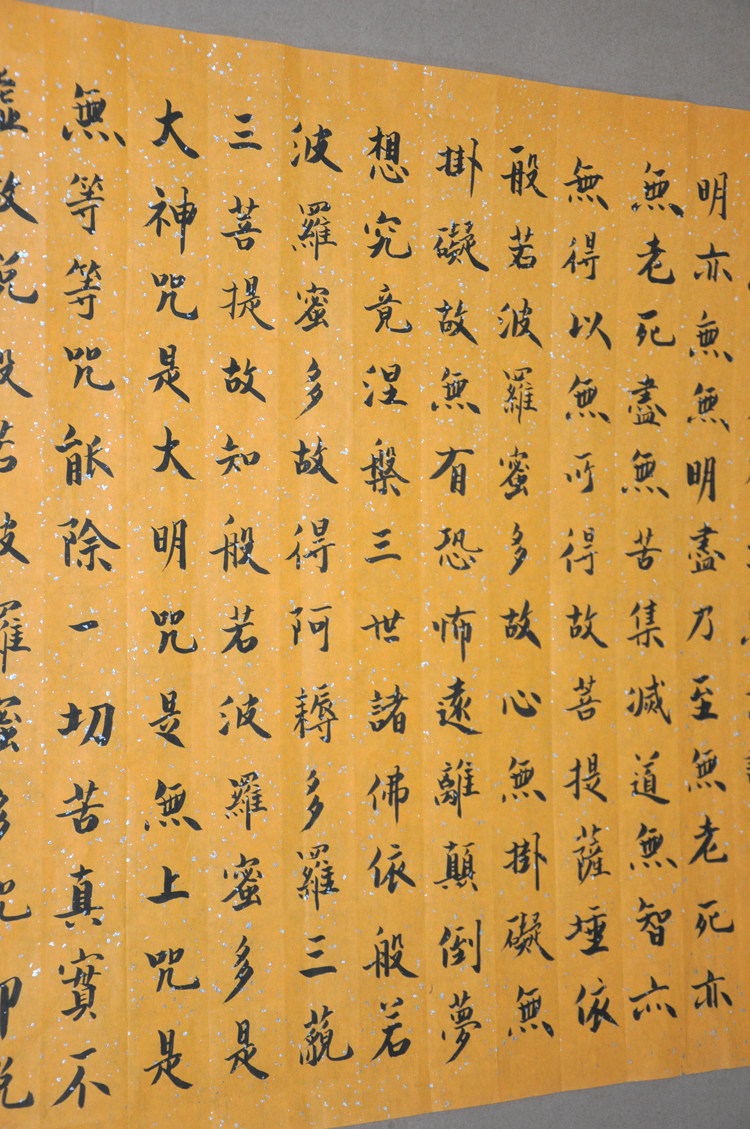 明亦無無明盡乃至無老死亦
無老死盡無苦集滅道無智亦
無得以無所得故菩提薩埵依
般若波羅蜜多故心無掛礙無
掛礙故無有恐怖遠離顛倒夢
想究竟涅槃三世諸佛依般若
波羅蜜多故得阿耨多羅三藐
三菩提故知般若波羅蜜多是
大神咒是大明咒是無上咒是
無等等咒能除一切苦真實不
虛故說般若波羅蜜多咒即說